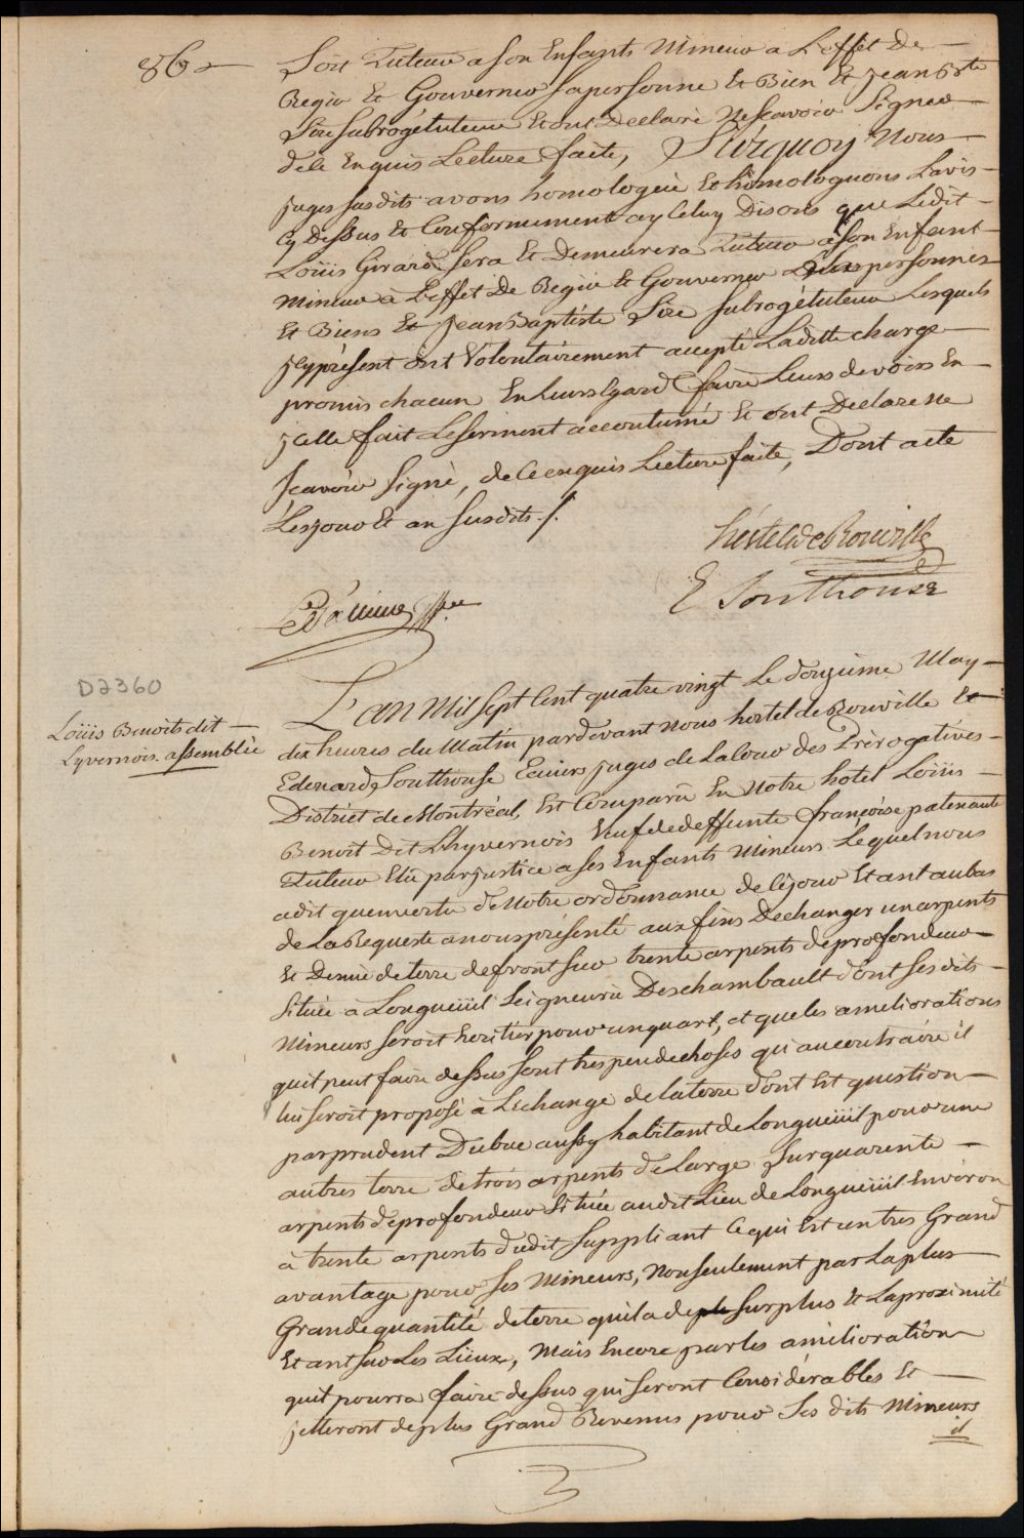 86 –
Soit Tuteur a son Enfants Mineur a L'effét De –
Regir Et Gouverner sapersonne Et Bien Et Jean Bste
Sire subrogétuteur Et ont Declaré Nescavoir Signer –
dece Enquis Lecture faite, Surquoy Nous –
juges susdits avons homologué Et homologuons Lavis –
Cy Dessus Et Conformement ayceluy Disons que Ledit –
Loüis Girard sera Et Demeurera Tuteur a son Enfant –
Mineur à L'effet De Regir Et Gouverner personnes
Et Biens Et Jean Baptiste Sire subrogétuteur Lesquels
jcyprésent ont Volontairement accepté Laditte charge –
promis chacun En Leurs Egard faire Leurs devoirs En –
jcelle fait Le serment accoutumé Et ont Declare ne
scavoir signé, de Ce enquis Lecture faite, Dont acte
Les jour Et an susdits ./.
hertel de Rouville
E Southouse
D2360
Loüis Benoits dit –
Lyvernois. assemblée
L'an Mil sept Cent quatre vingt Le douzieme May –
dix heures du Matin pardevant nous hertel de Rouville Et –
Edouard Southouse Ecuiers juges de La Cour des Prérogatives –
District de Montréal, Est Comparû En Notre hotel Loiiis –
Benoit Dit Lhyvernois Veuf de deffunte françoise patenaute
Tuteur Elû par justice a ses Enfants Mineurs Lequel nous
adit quenvertu de Notre ordonnance de Cejour Etant au bas
de La Requeste a nous présenté aux fins Dechanger un arpents
Et Demie de terre de front sur trente arpents de profondeur –
Située à Longueüil Seigneurie Deschambault dont ses dits –
Mineurs seroit heritier pour unquart, et que les ameliorations
quil peut faire dessus sont tres peu de choses qu'au contraire il
lui seroit proposé à L'echange de la terre dont Est question –
par prudent Dubuc aussy habitant de Longueüil pour une
autres terre de trois arpents de Large sur quarente –
arpents de profondeur Située audit Lieu de Longueüil Environ
à trente arpents dudit suppliant Ce qui Est un tres Grand
avantage pour ses Mineurs, Non seulement par La plus
Grande quantité de terre quil a de surplus Et La proximité
Etant sur Les Lieux, Mais Encore par les amélioration
quil pourra faire dessus qui seront Considérables Et –
jetteront de plus Grand Revenus pour Ses dits Mineurs
il